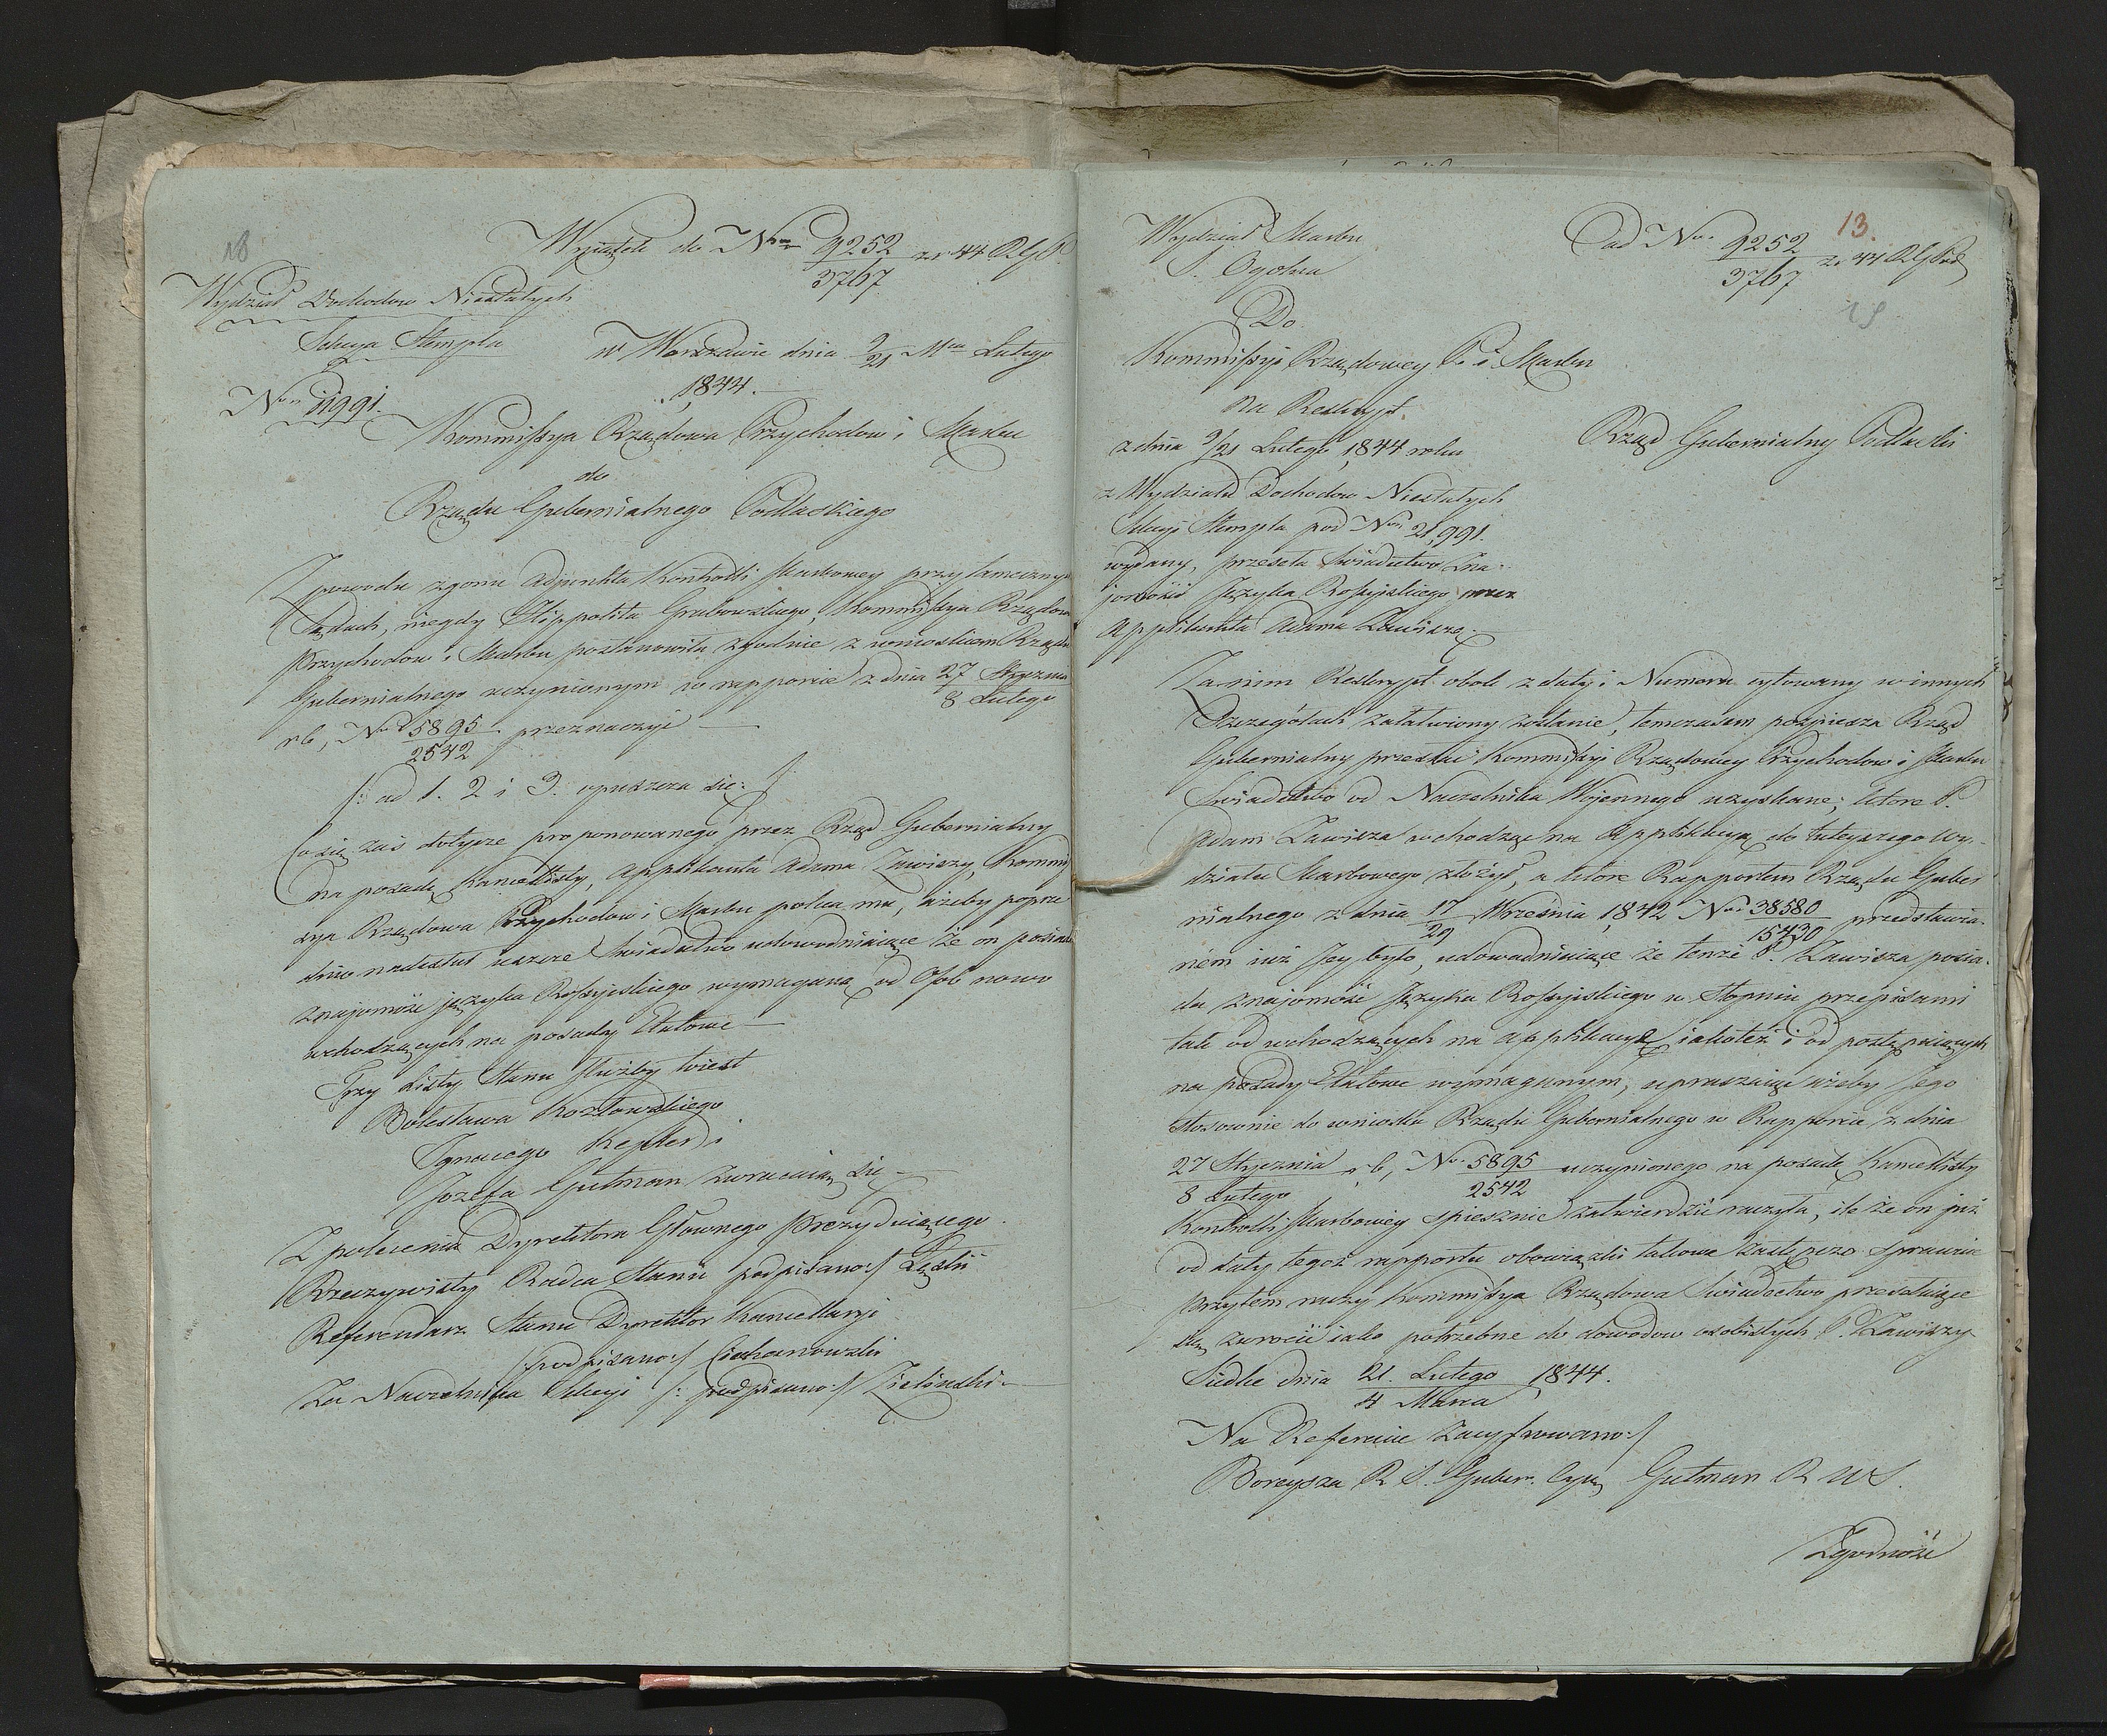 18
Wyjątek do Nru 9252/3767 z r 44 RGP.
Wydział Dochodow Niestałych
Sekcya Stempla
w Warszawie dnia 9/21 Mca Lutego
1844.
Nro 11991.
Kommissya Rządowa Przychodow i Skarbu
do
Rządu Gubernialnego Podlaskiego
Z powodu zgonu Adjunkta Kontrolli Skarbowey przy tamecznych
Sądach, niegdy Hippolita Grabowskiego, Kommissya Rządowa
Przychodow i Skarbu postanowiła zgodnie z wnioskiem Rządu
Gubernialnego uczynionym w rapporcie z dnia 27 Stycznia/8 Lutego
r b, Nro 5895/2542 przeznaczyć
/: ad 1. 2 i 3. opuszcza się :/
Co się zaś dotycze proponowanego przez Rząd Gubernialny
na posadę Kancellisty, Applikanta Adama Zawiszy, Kommis
sya Rządowa Przychodow i Skarbu poleca mu, ażeby poprze
dnio nadesłał nasze Swiadectwo udowodniaiące że on posiada
znajomość języka Rossyiskiego wymaganą od Osob nowo
wchodzących na posady Etatowe
Trzy Listy Stanu Służby tu iest
Bolesława Kozłowskiego
Ignacego Kepler i
Jozefa Gutman zwracaią się
Z polecenia Dyrektora Głownego Prezyduiącego
Rzeczywisty Radca Stanu podpisano:/ Łęski
Referendarz Stanu Dyrektor Kancellaryi
/podpisano:/ Ciechanowski
Za Naczelnika Sekcyi /: podpisano:/ Zielinski
13.
Wydział Skarbu
S. Ogolna
ad Nro 9252/3767 z r 44 RGPod
19
Do
Kommissyi Rządowey P. i Skarbu
na Reskrypt
z dnia 9/21 Lutego 1844 roku
z Wydziału Dochodow Niestałych
Sekcyi Stempla pod Nro 21,991.
wydany, przeseła Swiadectwo Zna-
jomości Języka Rossyiskiego przez
Applikanta Adama Zawiszę
Rząd Gubernialny Podlaski
Zanim Reskrypt obok z daty i Numeru cytowany w innych
Szczegółach załatwiony zostanie, temczasem pospiesza Rząd
Gubernialny przesłać Kommissyi Rządowey Przychodow i Skarbu
Swiadectwo od Naczelnika Wojennego uzyskane, które P.
Adam Zawisza wchodząc na Applikacyą do tuteyszego Wy-
działu Skarbowego złożył, a które Rapportem Rządu Guber
nialnego z dnia 17/29 Września 1842 Nro 38580/15430 przedstawia-
ném iuż Jey było, udowadniaiące że tenże P. Zawisza posia-
da znajomość Języka Rossyiskiego w Stopniu przepisami
tak od wchodzących na applikacyą iakoteż i od postępuiących
na posady Etatowe wymaganym, upraszaiąc ażeby Jego
stosownie do wniosku Rządu Gubernialnego w Rapporcie z dnia
27 Stycznia/8 Lutego r b, Nro 5895/2542 uczynionego na posadę Kancellisty
Kontrolli Skarbowey spiesznie zatwierdzić raczyła, ile że on już
od daty tegoż rapportu obowiązki takowe zastępczo sprawuie
Przytem raczy Kommissya Rządowa Swiadectwo przesełaiące
się zwrocić iako potrzebne do dowodow osobistych P. Zawiszy
Siedlce dnia 21. Lutego/4 Marca 1844.
Na Referacie Zacyfrowano:/
Boreysza R S. Guber. Cyw. Gutman R W S.
Zgodność